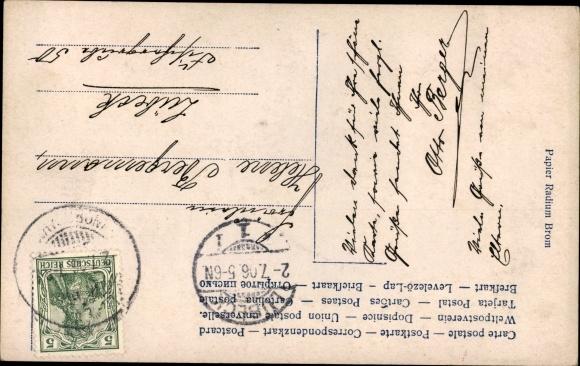 Carte postale — Postkarte — Correspondenzkart — Postcard
Weltpostverein — Dopisnice — Union postale universelle.
Tarjeta Postal — Cartões Postaes — Cartolina postale
Brefkart — Levelező-Lap — Briefkaart — Открытое письмо
Fräulein
Helene Bergemann
Lübeck
50
Vielen Dank für Ihre
Karte, sowie viele
Grüße sendet Ihnen
Ihr
Otto Berger
Viele Grüße an meine
Eltern.
Papier Radium Brom
DEUTSCHES REICH
5
2-7.06.5-6N
1